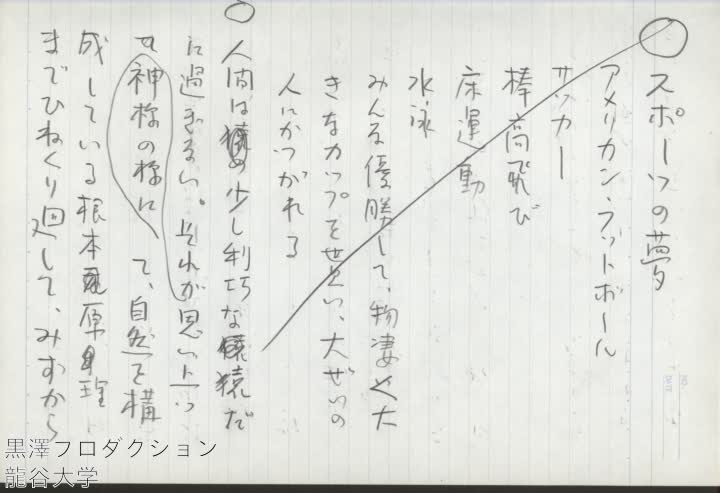 ○スポーツの夢
アメリカン・フットボール
サッカー
棒高飛び
床運動
水泳
みんな優勝して、物凄く大
きなカップをせおい、大ぜいの
人にかつがれる
○人間は 少し利巧な猿だ
に過ぎない。それが思い上つ
て、自然を構
神様の様に
成している根本 原理
までひねくり廻して、みずから
黒澤プロダクション
龍谷大学